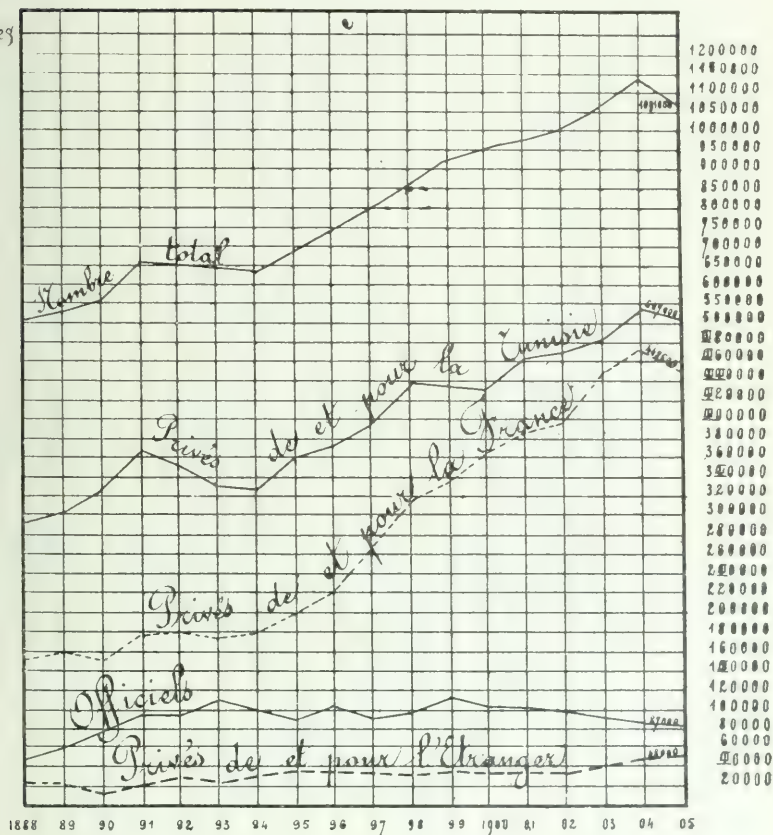 1200000
1150000
1100000
1050000
1000000
950000
900000
850000
800000
750000
700000
650000
600000
550000
500000
480000
460000
440000
420000
400000
380000
360000
340000
320000
300000
280000
260000
240000
220000
200000
180000
160000
140000
120000
100000
80000
60000
40000
20000
Nombre total
Privés de et pour la Tunisie
Privés de et pour la France
Officiels
Privés de et pour l'Etranger
1888 89 90 91 92 93 94 95 96 97 98 99 1900 01 02 03 04 05